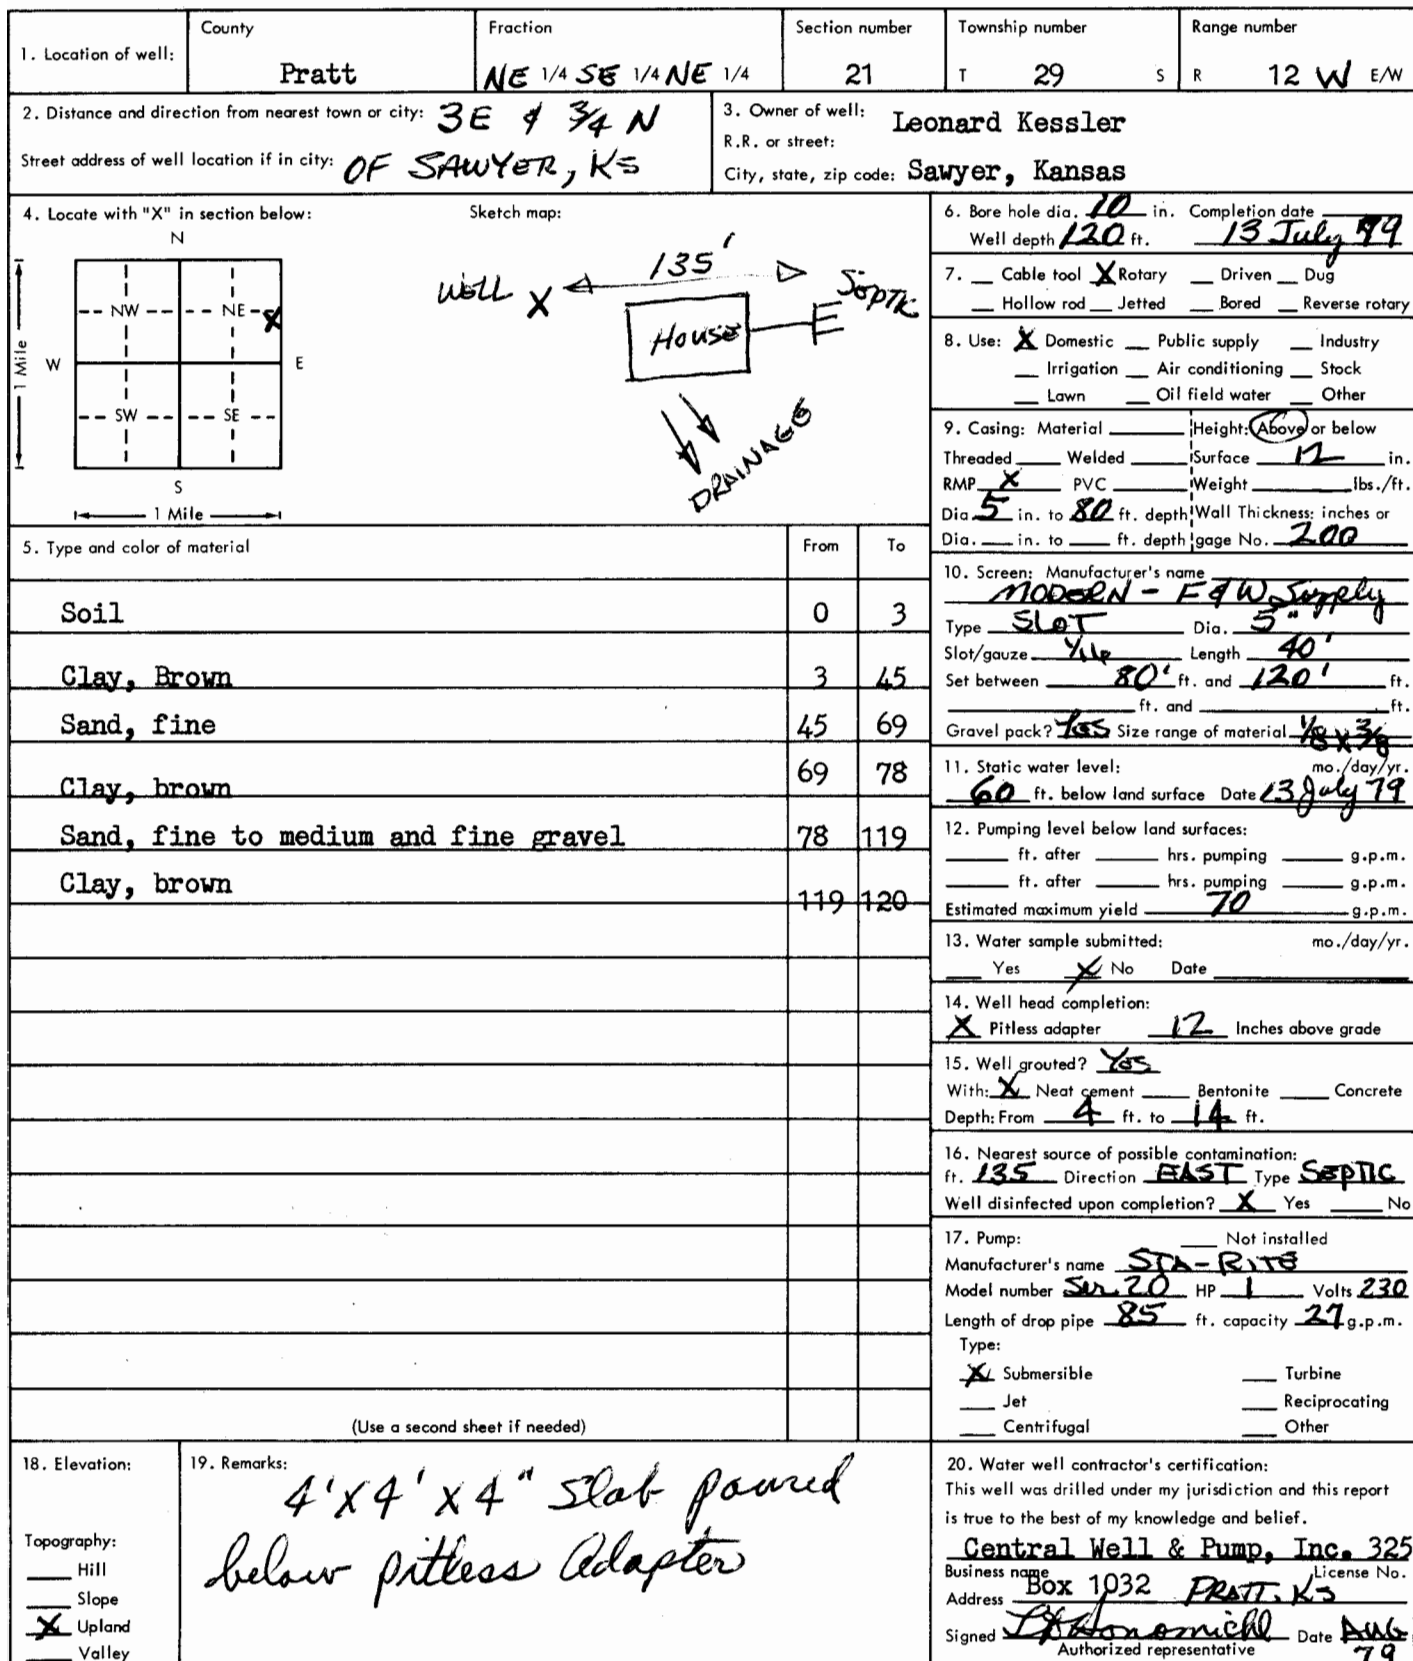 1. Location of well:
County
Pratt
Fraction
NE 1/4 SE 1/4 NE 1/4
Section number
21
Township number
T 29 S
Range number
R 12 W E/W
2. Distance and direction from nearest town or city: 3E & 3/4 N
Street address of well location if in city: OF SAWYER, KS
3. Owner of well: Leonard Kessler
R.R. or street:
City, state, zip code: Sawyer, Kansas
4. Locate with "X" in section below:
N
NW NE X
W E
SW SE
S
1 Mile
1 Mile
Sketch map:
135'
WELL X
SEPTIC
HOUSE
DRAINAGE
5. Type and color of material From To
Soil 0 3
Clay, Brown 3 45
Sand, fine 45 69
Clay, brown 69 78
Sand, fine to medium and fine gravel 78 119
Clay, brown 119 120
(Use a second sheet if needed)
6. Bore hole dia. 10 in. Completion date
Well depth 120 ft. 13 July 79
7. __ Cable tool X Rotary __ Driven __ Dug
__ Hollow rod __ Jetted __ Bored __ Reverse rotary
8. Use: X Domestic __ Public supply __ Industry
__ Irrigation __ Air conditioning __ Stock
__ Lawn __ Oil field water __ Other
9. Casing: Material ____ Height: Above or below
Threaded ____ Welded ____ Surface 12 in.
RMP X PVC ____ Weight ____ lbs./ft.
Dia 5 in. to 80 ft. depth Wall Thickness: inches or
Dia. __ in. to __ ft. depth gage No. 200
10. Screen: Manufacturer's name
MODERN - E & W Supply
Type SLOT Dia. 5"
Slot/gauze 1/16 Length 40'
Set between 80' ft. and 120' ft.
____ ft. and ____ ft.
Gravel pack? Yes Size range of material 1/8 x 3/8
11. Static water level: mo./day/yr.
60 ft. below land surface Date 13 July 79
12. Pumping level below land surfaces:
____ ft. after ____ hrs. pumping ____ g.p.m.
____ ft. after ____ hrs. pumping ____ g.p.m.
Estimated maximum yield 70 g.p.m.
13. Water sample submitted: mo./day/yr.
__ Yes X No Date ____
14. Well head completion:
X Pitless adapter 12 Inches above grade
15. Well grouted? Yes
With: X Neat cement ____ Bentonite ____ Concrete
Depth: From 4 ft. to 14 ft.
16. Nearest source of possible contamination:
ft. 135 Direction EAST Type SEPTIC
Well disinfected upon completion? X Yes ____ No
17. Pump: ____ Not installed
Manufacturer's name STA-RITE
Model number Ser. 20 HP 1 Volts 230
Length of drop pipe 85 ft. capacity 27 g.p.m.
Type:
X Submersible __ Turbine
__ Jet __ Reciprocating
__ Centrifugal __ Other
18. Elevation:
Topography:
__ Hill
__ Slope
X Upland
__ Valley
19. Remarks:
4'X4'X4" Slab poured
below pitless Adapter
20. Water well contractor's certification:
This well was drilled under my jurisdiction and this report
is true to the best of my knowledge and belief.
Central Well & Pump, Inc. 325
Business name License No.
Address Box 1032 PRATT, KS
Signed Honomichl Date AUG
Authorized representative 79